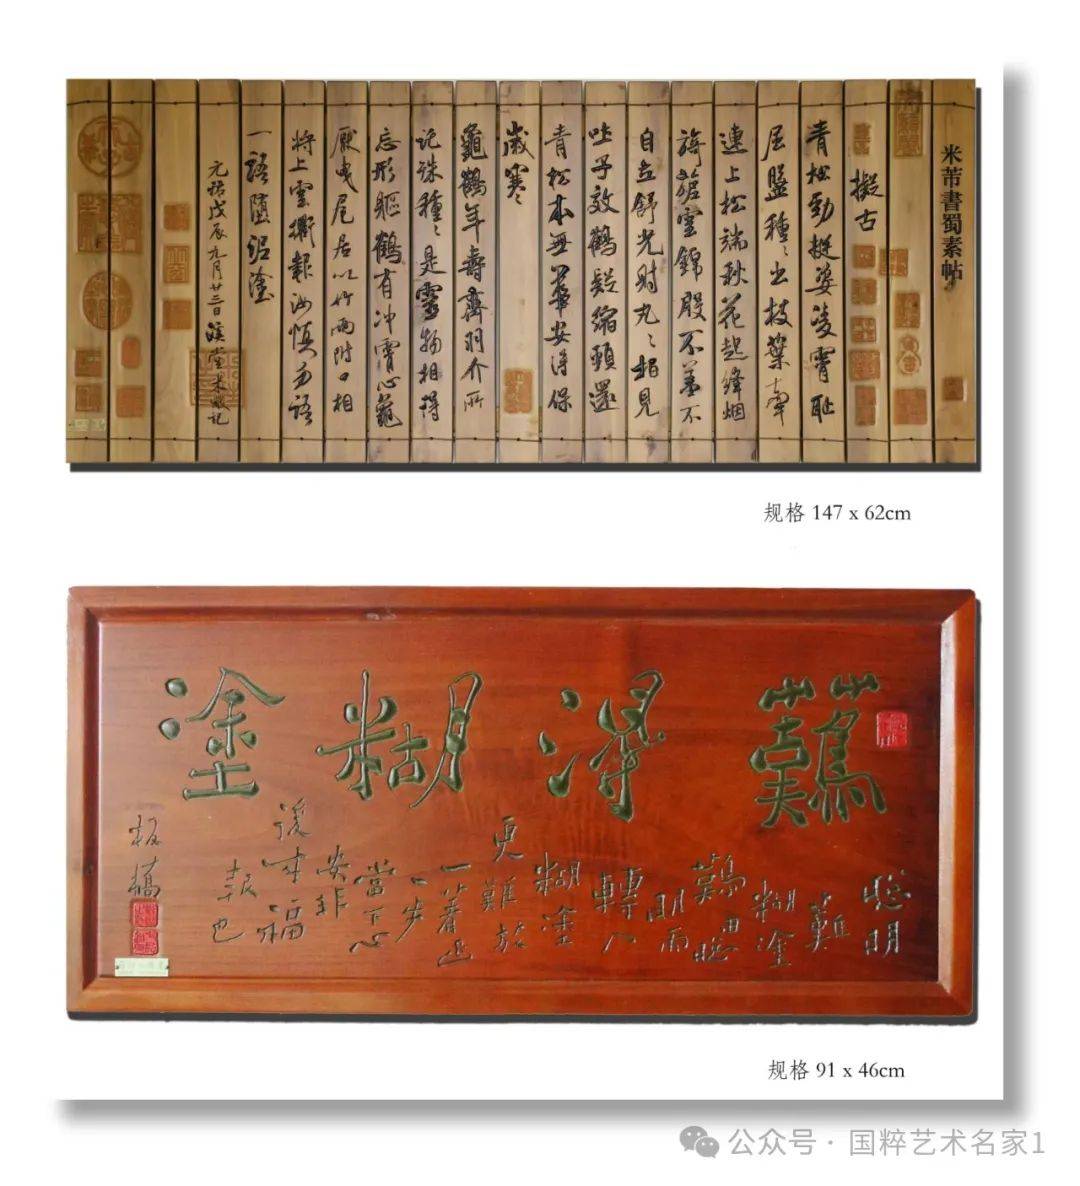 米芾書蜀素帖
擬古
青松勁挺姿凌霄恥
屈盤種〻出枝葉牽
連上松端秋花起絳烟
旖旎雲錦殷不羞不
自立舒光射丸〻栢見
吐子效鶴疑縮頸還
青松本無華安得保
歲寒〻
龜鶴年壽齊羽介所
託殊種〻是靈物相得
忘形軀鶴有沖霄心龜
厭曳尾居以竹兩附口相
將上雲衢報汝慎勿語
一語墮泥塗
元祐戊辰九月廿三日溪堂米黻記
规格 147 x 62cm
難得糊塗
聰明
難
糊塗
難由聰
明而
轉入
糊塗
更難放
一著退
一步
當下心
安非
後來福
報也
板橋
规格 91 x 46cm
公众号 · 国粹艺术名家1